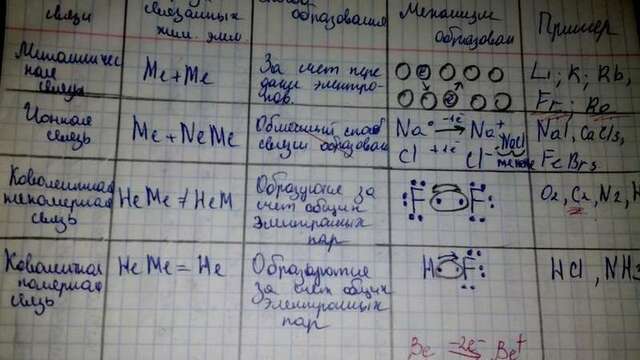 связи
связанных
хим. элем.
образования
Механизм
образован
Пример
Металличес
кая
связь
Me + Me
За счет пере
дачи электро-
нов.
Li; K; Rb,
Fr; Ba
Ионная
связь
Me + NeMe
Обменный спос
связи образован
Na• −1e⁻ → Na⁺
Cl +1e⁻ Cl⁻
NaCl
NaI, CaCl₃,
FeBr₃
Ковалентная
неполярная
связь
НеМе ≠ НеМ
Образующие за
счет общих
электронных
пар
F F
O₂, Cr, N₂, H
Ковалентная
полярная
связь
НеМе = Не
Образоротие
за счет общих
электронных
пар
H F
HCl, NH₃
Be −2e⁻ → Be⁺